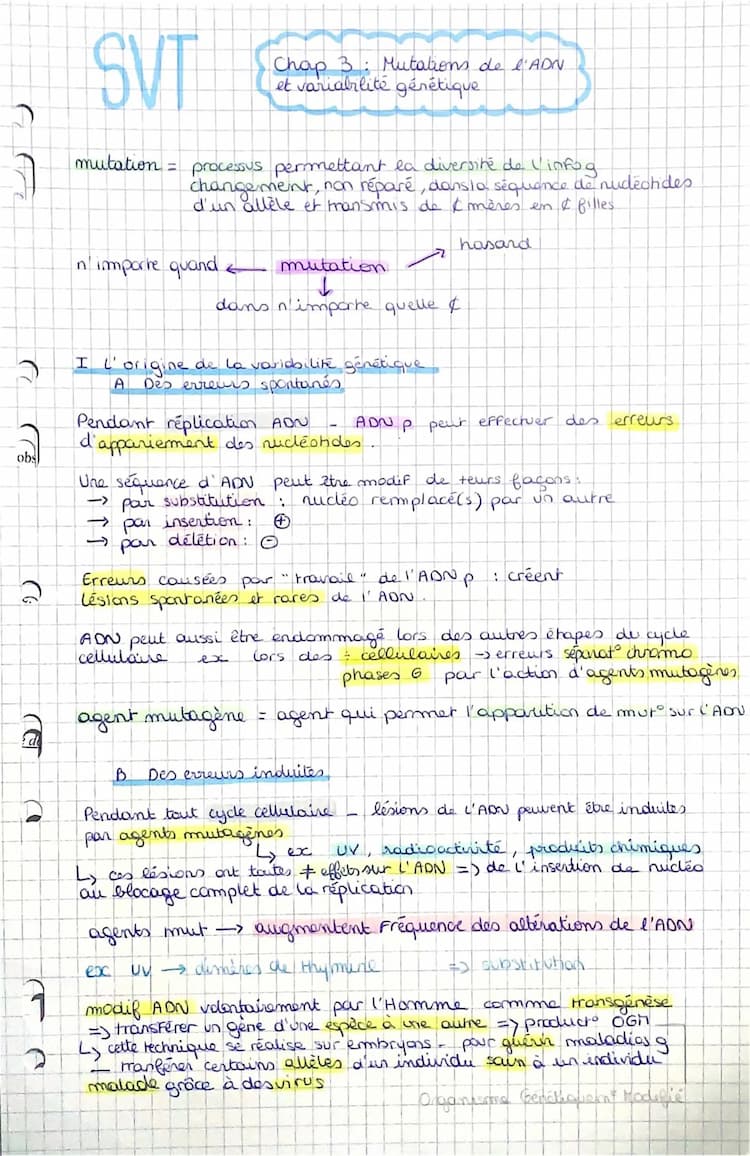 SVT
Chap 3 : Mutations de l'ADN
et variabilité génétique
mutation = processus permettant la diversité de l'info g
changement, non réparé, dans la séquence de nucléotides
d'un allèle et transmis de ¢ mères en ¢ filles
hasard
n'importe quand ← mutation
dans n'importe quelle ¢
I L'origine de la variabilité génétique
A Des erreurs spontanés
Pendant réplication ADN - ADN p peut effectuer des erreurs
d'appariement des nucléotides.
obs
Une séquence d'ADN peut être modif de +eurs façons :
→ par substitution : nucléo remplacé(s) par un autre
→ par insertion : ⊕
→ par délétion : ⊖
Erreurs causées par "travail" de l'ADN p : créent
lésions spontanées et rares de l'ADN.
ADN peut aussi être endommagé lors des autres étapes du cycle
cellulaire ex lors des ÷ cellulaires → erreurs séparat° chromo
phases G par l'action d'agents mutagènes
agent mutagène = agent qui permet l'apparition de mut° sur l'ADN
B Des erreurs induites
Pendant tout cycle cellulaire - lésions de l'ADN peuvent être induites
par agents mutagènes
↳ ex UV, radioactivité, produits chimiques
↳ ces lésions ont toutes ≠ effets sur l'ADN => de l'insertion de nucléo
au blocage complet de la réplication
agents mut → augmentent fréquence des altérations de l'ADN
ex UV → dimères de thymine => substitution
modif ADN volontairement par l'Homme comme transgénèse
=> transférer un gène d'une espèce à une autre => product° OGM
↳ cette technique se réalise sur embryons - pour guérir maladies g
— transférer certains allèles d'un individu sain à un individu
malade grâce à des virus
Organisme Génétiquem^t Modifié